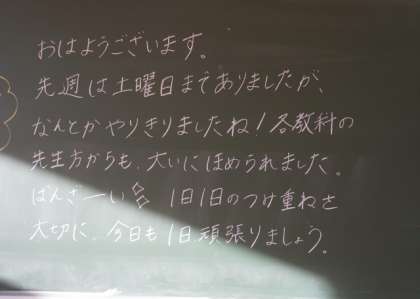 おはようございます。
先週は土曜日までありましたが、
なんとかやりきりましたね!各教科の
先生方からも、大いにほめられました。
ばんざーい 1日1日のつけ重ねを
大切に、今日も1日、頑張りましょう。